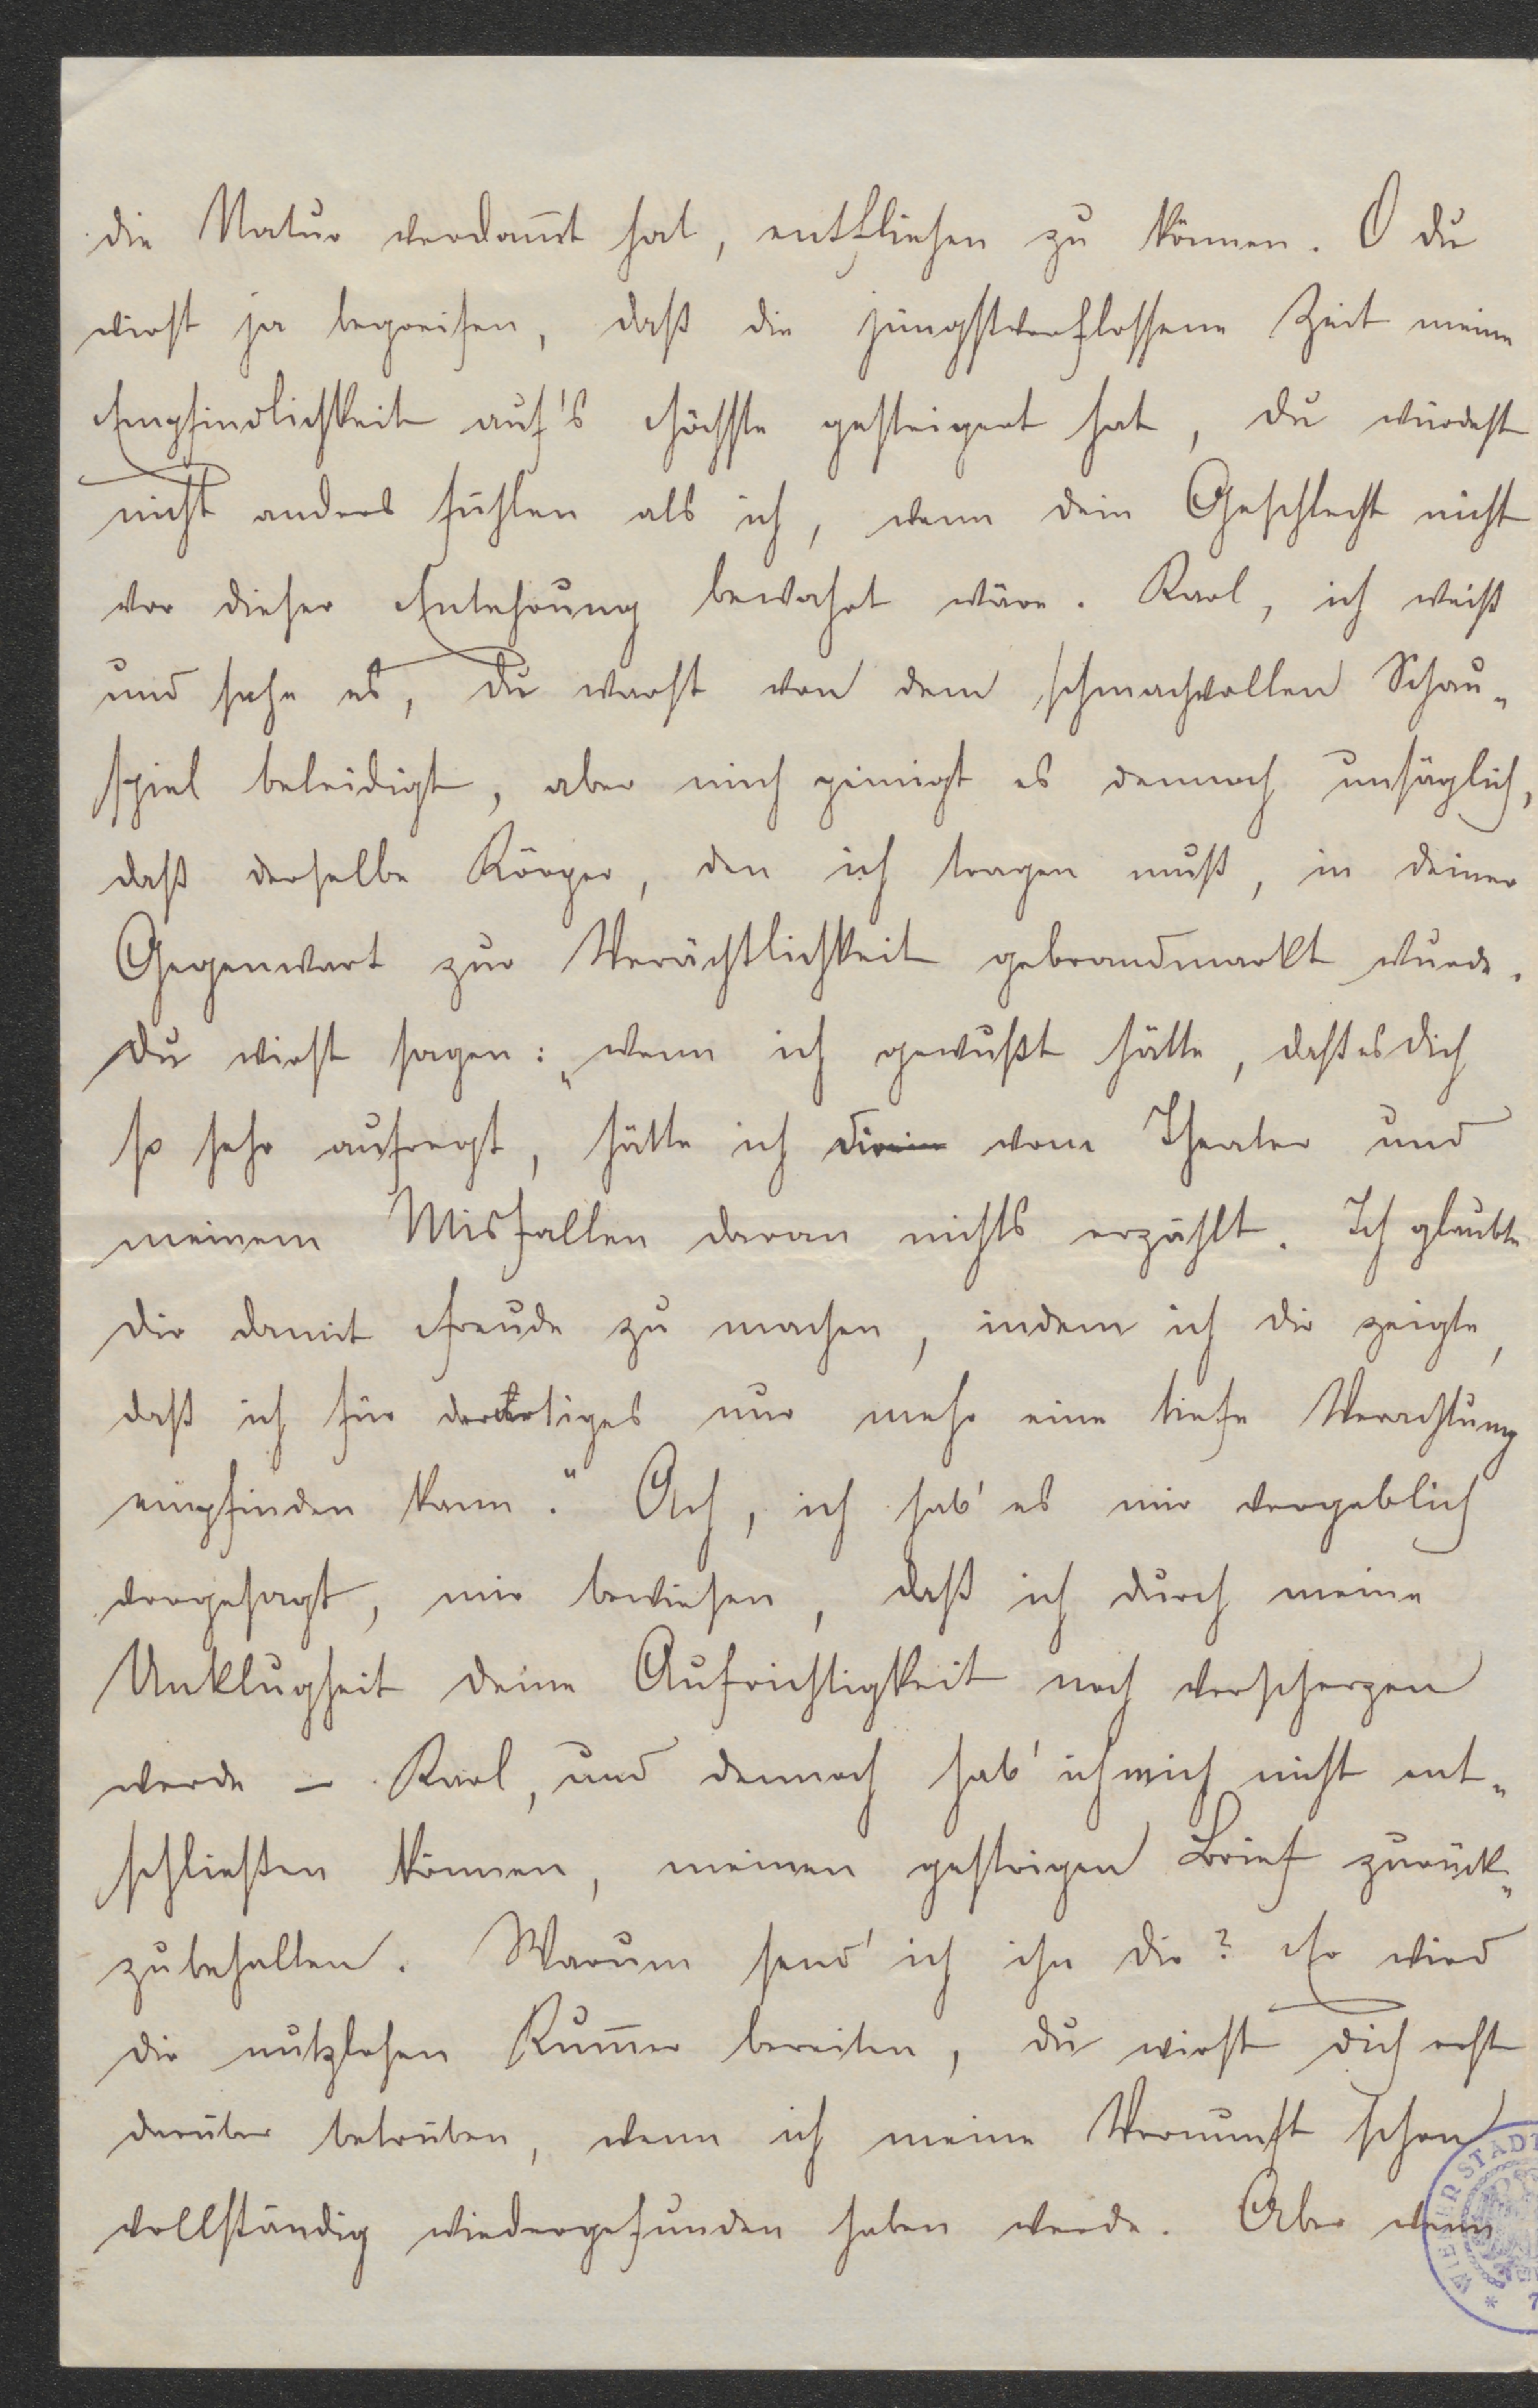 die Natur verdam̅t hat, entfliehen zu können. O du
wirst ja begreifen, daß die jüngstverflossene Zeit meine
Empfindlichkeit auf's Höchste gesteigert hat, du würdest
nicht anders fühlen als ich, wenn dein Geschlecht nicht
vor dieser Entehrung bewahrt wäre. Karl, ich weiß
und sehe es, du warst von dem schmachvollen Schau„
spiel beleidigt, aber mich peinigt es dennoch unsäglich,
daß derselbe Körper, den ich tragen muß, in deiner
Gegenwart zur Verächtlichkeit gebrandmarkt wurde.
Du wirst sagen: „wenn ich gewußt hätte, daß es dich
so sehr aufregt, hätte ich vom Theater und
meinem Misfallen daran nichts erzählt. Ich glaubte
dir damit Freude zu machen, indem ich dir zeigte,
daß ich für derartiges nur mehr eine tiefe Verachtung
empfinden kann." Ach, ich hab' es mir vergeblich
vorgesagt, mir bewiesen, daß ich durch meine
Unklugheit deine Aufrichtigkeit noch verscherzen
werde – Karl, und dennoch hab' ich mich nicht ent„
schließen können, meinen gestrigen Brief zurück„
zubehalten. Warum send' ich ihn dir? Er wird
dir nutzlosen Kum̅er bereiten, du wirst dich erst
darüber betrüben, wenn ich meine Vernunft schon
vollständig wiedergefunden haben werde. Aber wenn
WIENER STADT